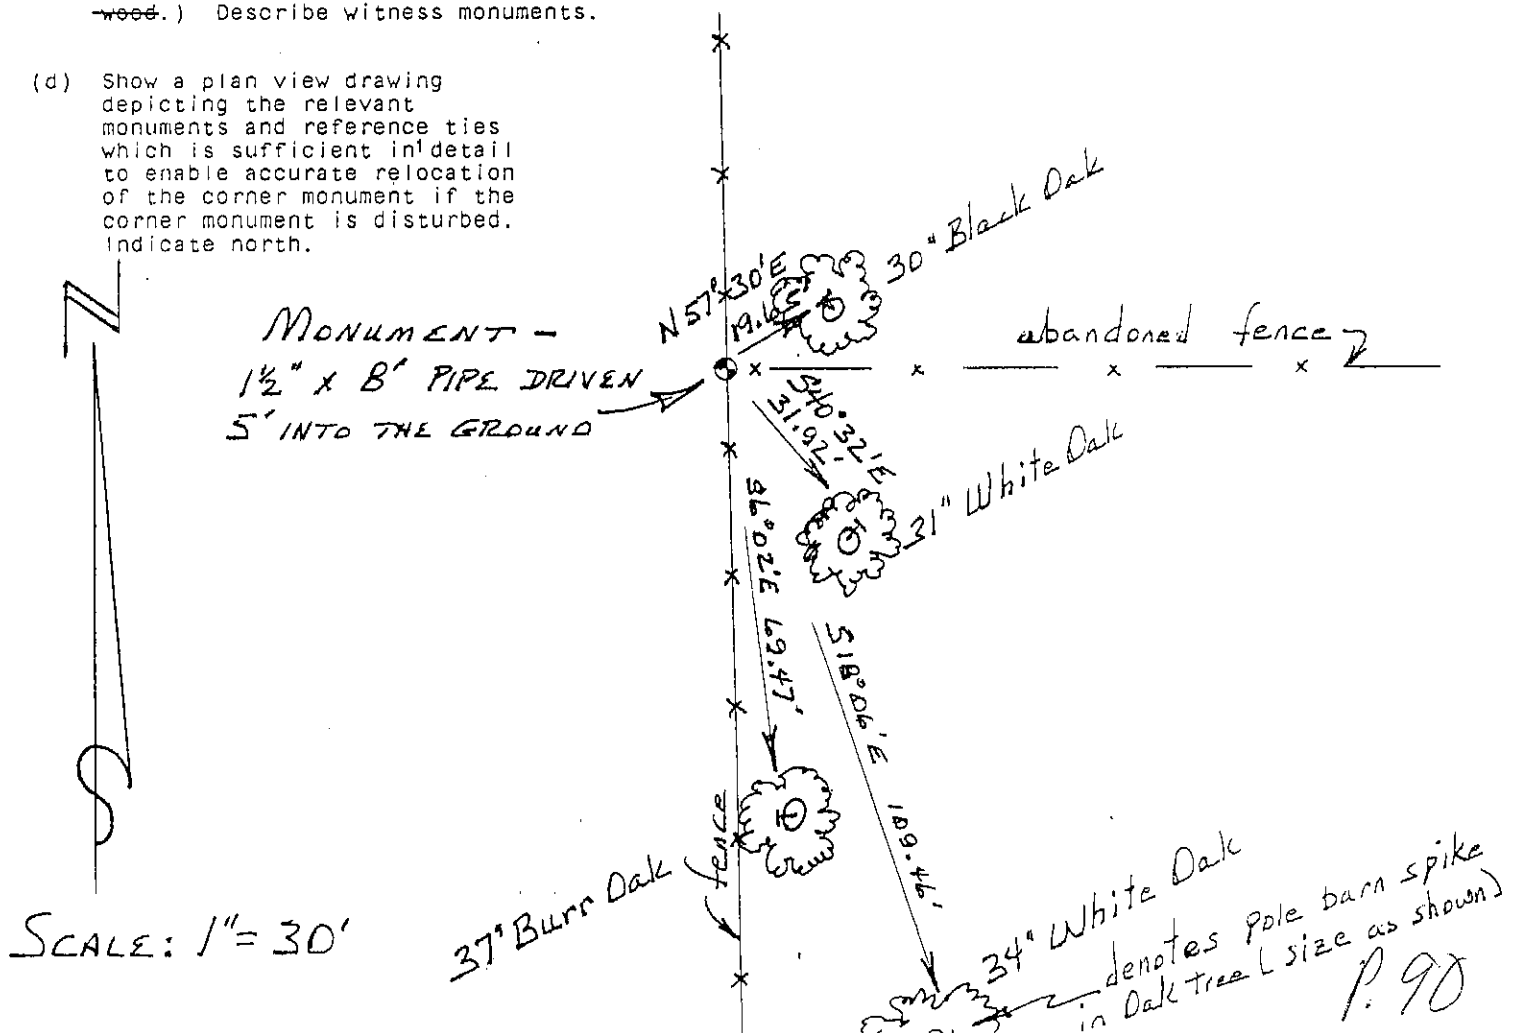 wood.) Describe witness monuments.
(d) Show a plan view drawing
depicting the relevant
monuments and reference ties
which is sufficient in detail
to enable accurate relocation
of the corner monument if the
corner monument is disturbed.
Indicate north.
N
S
MONUMENT -
1½" x 8' PIPE DRIVEN
5' INTO THE GROUND
N 57° 30' E
30" Black Oak
abandoned fence
S40°32'E
31.92'
31" White Oak
S6°02'E 69.47'
S18°06'E 109.46'
fence
37" Burr Oak
34" White Oak
denotes pole barn spike
in Oak Tree (size as shown)
SCALE: 1" = 30'
P. 90